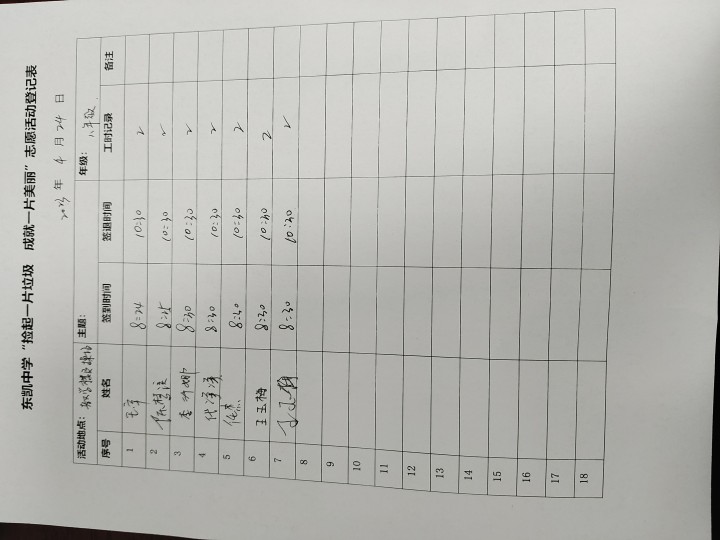 东凯中学“捡起一片垃圾 成就一片美丽”志愿活动登记表
2023 年 4 月 24 日
活动地点： 主题： 年级： 八年级
序号 姓名 签到时间 签退时间 工时记录 备注
1 8:24 10:30 2
2 8:25 10:30 2
3 8:30 10:30 2
4 8:30 10:30 2
5 8:30 10:30 2
6 王玉梅 8:30 10:30 2
7 8:30 10:30 2
8
9
10
11
12
13
14
15
16
17
18